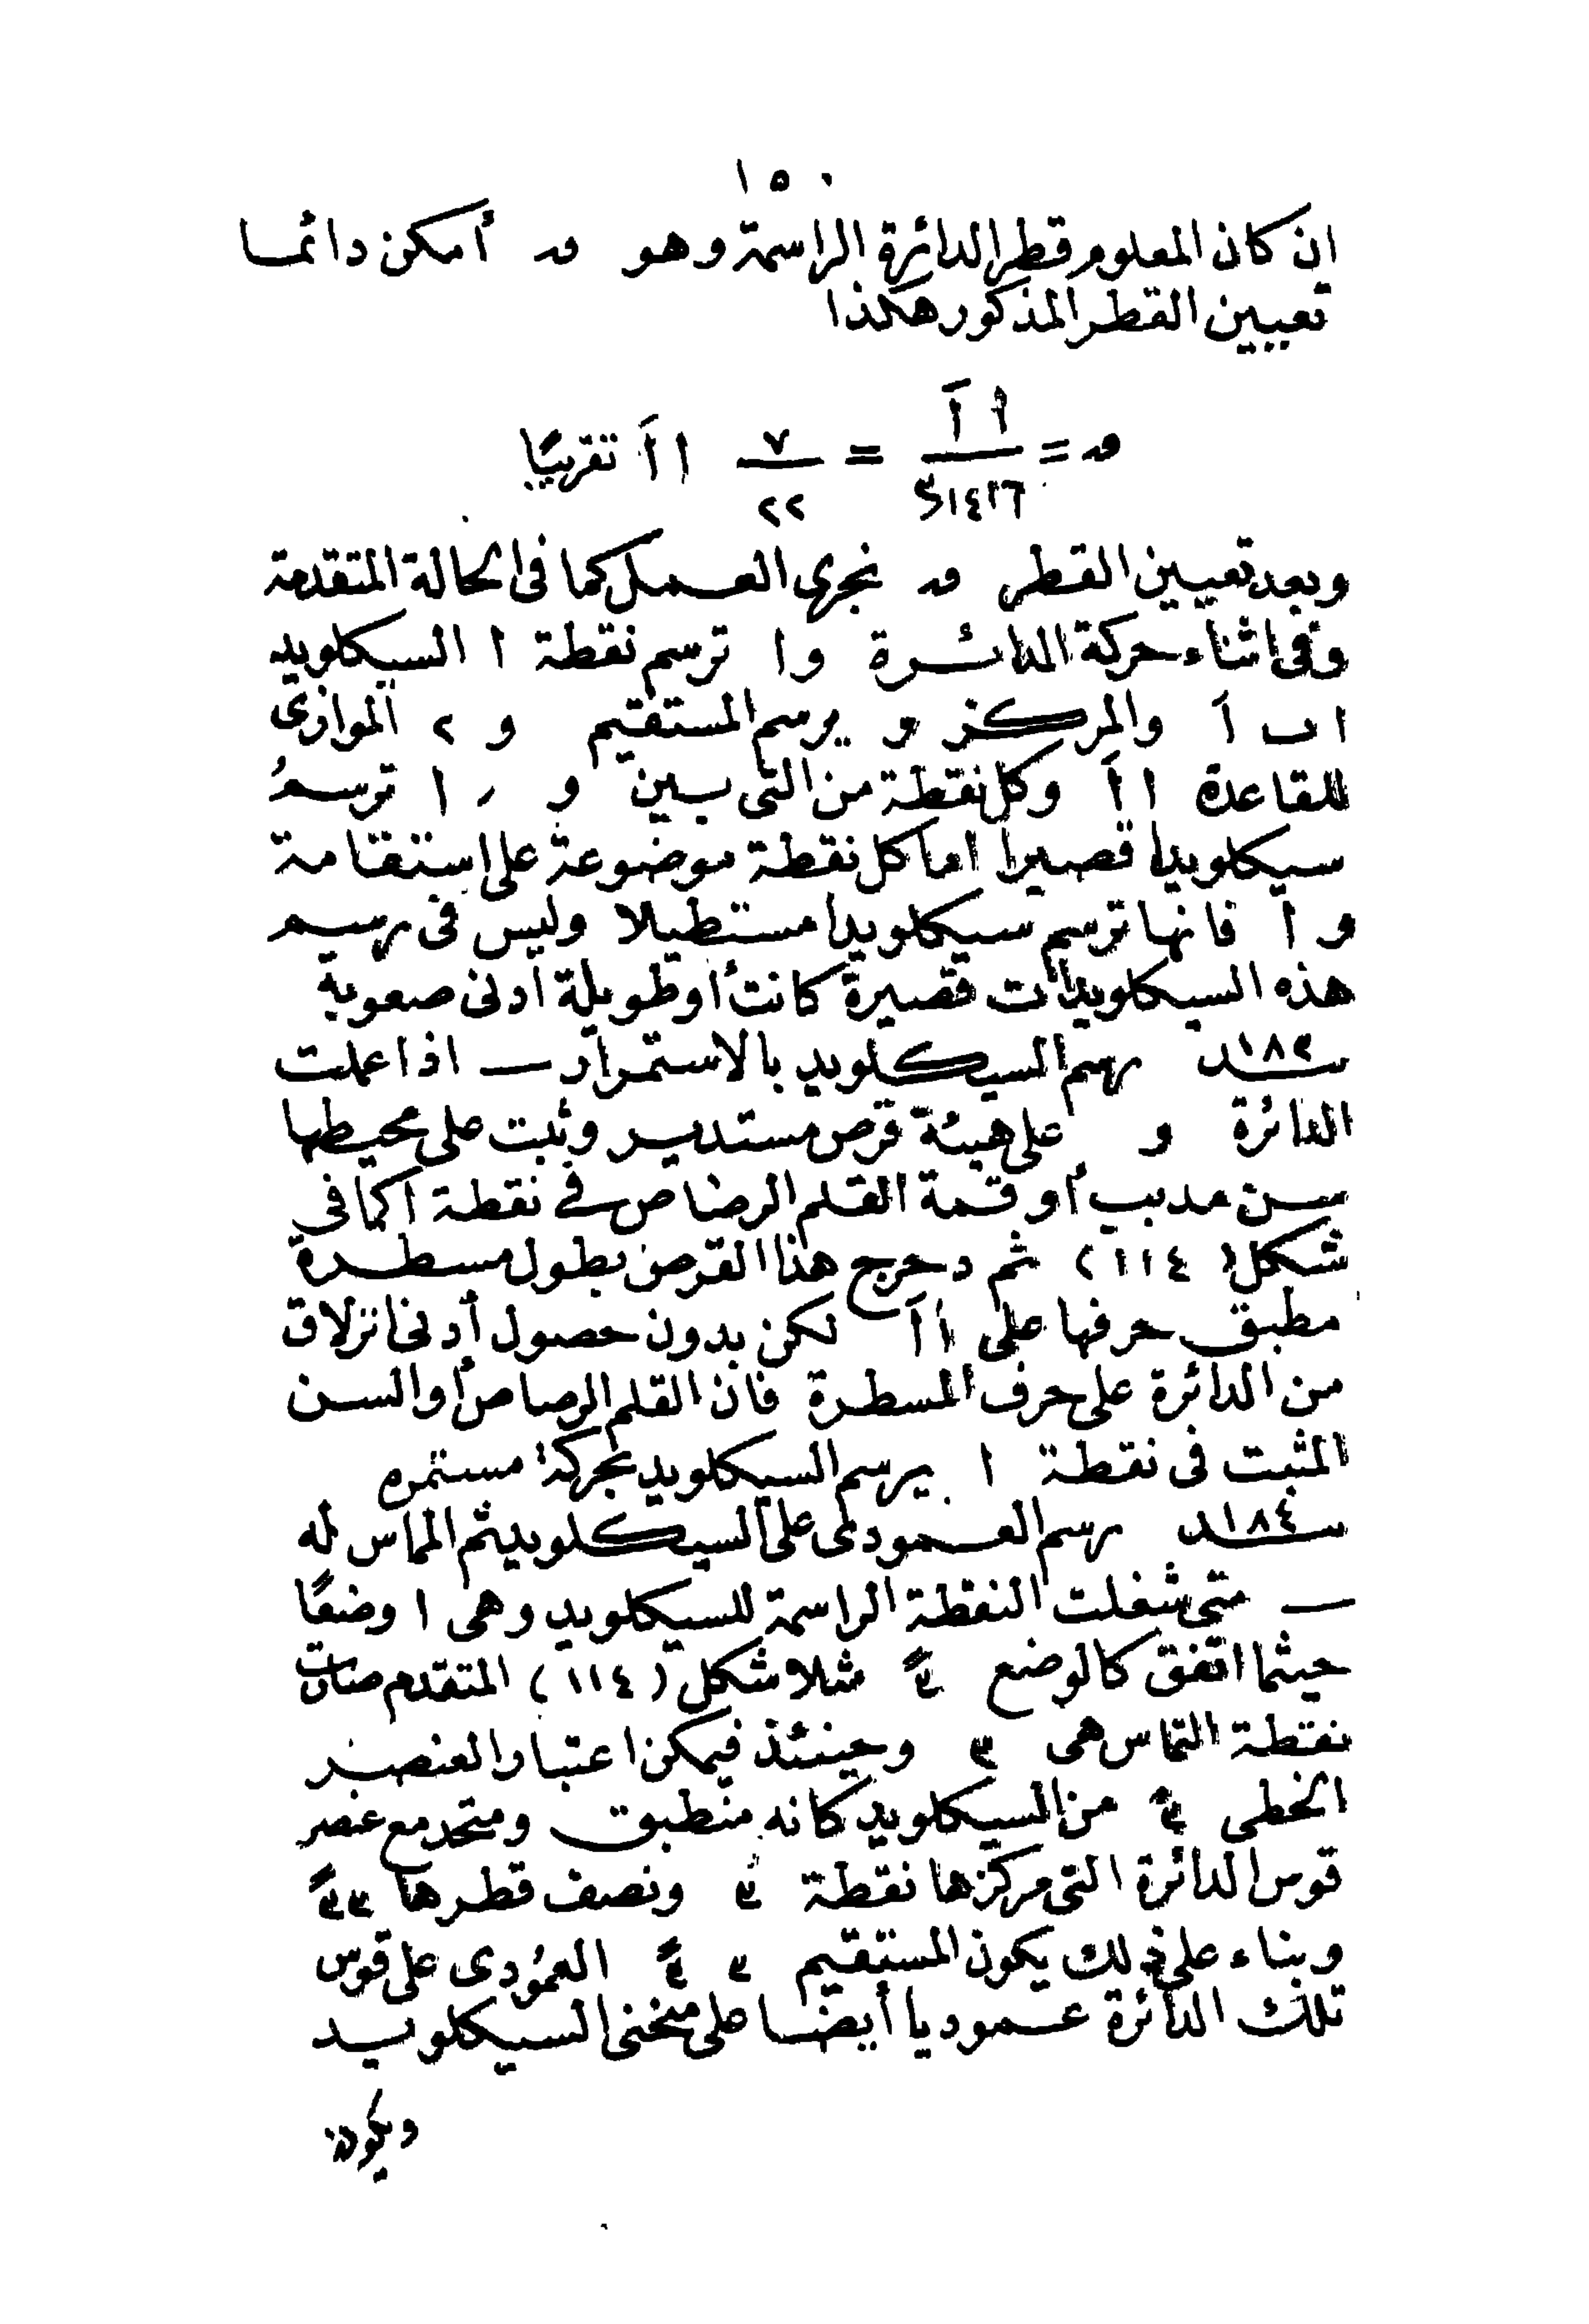 ١٥٠
ان كان المعلوم قطر الدائرة الراسمة وهو ق أمكن دائما
تعيين القطر المذكور هكذا
ق = ا اَ / ٣١٤١٦ = ٧ / ٢٢ ا اَ تقريبًا
وبعد تعيين القطر ق نجرى العمل كما فى الحالة المتقدمة
وفى اثناء حركة الدائرة و ا ترسم نقطة ا السيكلويد
ا ب اَ والمركز و يرسم المستقيم و الموازى
للقاعدة ا اَ وكل نقطة من التى بين و ر ا ترسم
سيكلويدا قصيرا اما كل نقطة موضوعة على استقامة
و ا فانها ترسم سيكلويدا مستطيلا وليس فى رسم
هذه السيكلويدات قصيرة كانت أو طويلة ادنى صعوبة
١٨٣ـند رسم السيكلويد بالاستمرار ــ اذا عملت
الدائرة و على هيئة قرص مستدير وثبت على محيطها
سن مدبب أو قمة القلم الرصاص فى نقطة ا كما فى
شكل (١١٤) ثم دحرج هذا القرص بطول مسطرة
مطبق حرفها على ا اَ لكن بدون حصول أدنى انزلاق
من الدائرة على حرف المسطرة فان القلم الرصاص أو السن
المثبت فى نقطة ا يرسم السيكلويد بحركة مستمره
١٨٤ـند رسم العمودى على السيكلويد ثم المماس له
ــ متى شغلت النقطة الراسمة للسيكلويد وهى ا وضعًا
حيثما اتفق كالوضع مثلا شكل (١١٤) المتقدم صارت
نقطة التماس هى وحينئذ فيمكن اعتبار العنصر
الخطى من السيكلويد كانه منطبق ومتحد مع عنصر
قوس الدائرة التى مركزها نقطة ونصف قطرها
وبناء على ذلك يكون المستقيم العمودى على قوس
تلك الدائرة عموديا أيضا على منحنى السيكلويد
ويكون